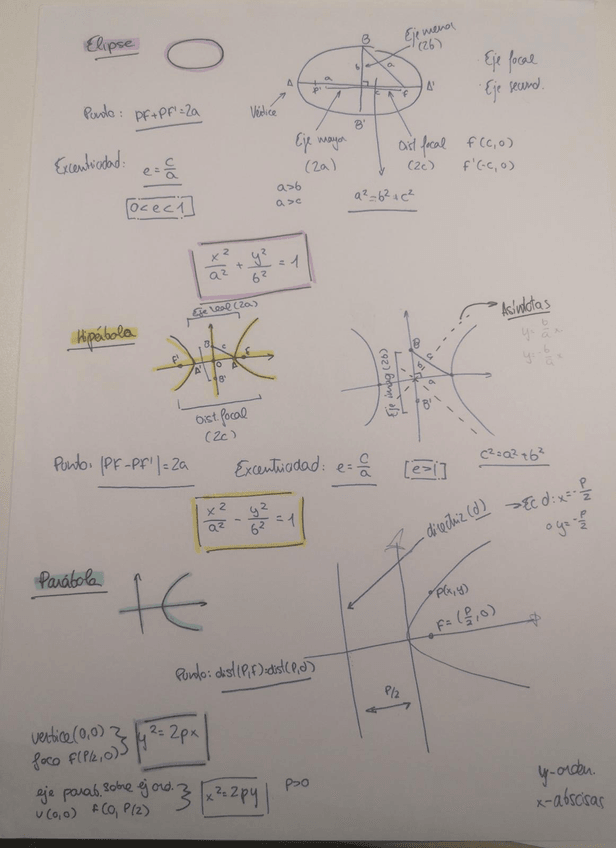 Elipse
B
Eje menor
(2b)
b
a
Eje focal
Eje secund.
A
a
F'
c
F
A'
Vértice
B'
Punto: PF+PF'=2a
Eje mayor
(2a)
Dist focal
(2c)
F(c,0)
F'(-c,0)
Excentricidad: e=c/a
0<e<1
a>b
a>c
a²=b²+c²
x²/a² + y²/b² = 1
Eje real (2a)
Hipérbola
B
c
F'
A'
O
A
F
B'
Dist. focal
(2c)
Asíntotas
y= b/a x
y= -b/a x
Eje imag (2b)
B
c
b
a
B'
Punto: |PF-PF'|=2a
Excentricidad: e=c/a
e>1
c²=a²+b²
x²/a² - y²/b² = 1
directriz (d)
→Ec d: x=-p/2
o y=-p/2
Parábola
P(x,y)
F=(p/2,0)
Punto: dist(P,F)=dist(P,d)
P/2
vertice(0,0)
foco F(P/2,0)
y²=2px
eje parab. sobre ej ord.
V(0,0) F(0,P/2)
x²=2py
P>0
y-orden.
x-abscisas